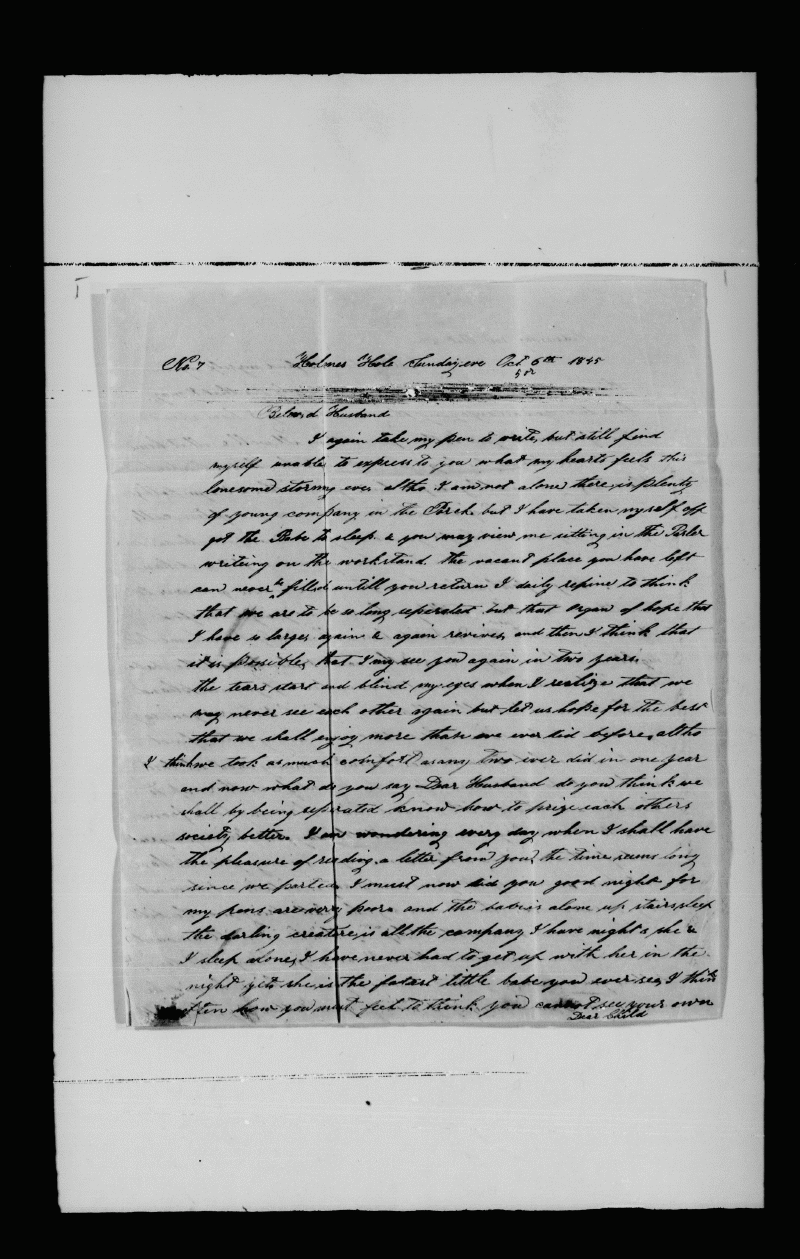 No. 7 Holmes Hole Sunday eve Oct 6th 1845
5th
Beloved Husband
I again take my pen to write, but still find
myself unable to express to you what my hearts feels this
lonesome stormy eve. altho I am not alone there is plenty
of young company in the Porch but I have taken myself off
got the Babe to sleep & you may view me sitting in the Parler
writeing on the workstand. the vacant place you have left
can never be filled untill you return I daily repine to think
that we are to be so long seperated but that Organ of hope that
I have so larges again & again revives, and then I think that
it is possible, that I may see you again in two years.
the tears start and blind my eyes when I realize that we
may never see each other again but let us hope for the best
that we shall enjoy more than we ever did before, altho
I think we took as much comfort as any two ever did in one year
and now what do you say Dear Husband do you think we
shall by being seperated know how to prize each others
society better. I am wondering every day when I shall have
the pleasure of reading a letter from you, the time seems long
since we parted I must now bid you good night for
my pens are very poor and the babe is alone up stairs, sleep
the darling creature, is all the company I have nights, she &
I sleep alone, I have never had to get up with her in the
night yet, she is the fatest little babe you ever see, I think
often how you must feel to think you cannot see your own
Dear Child